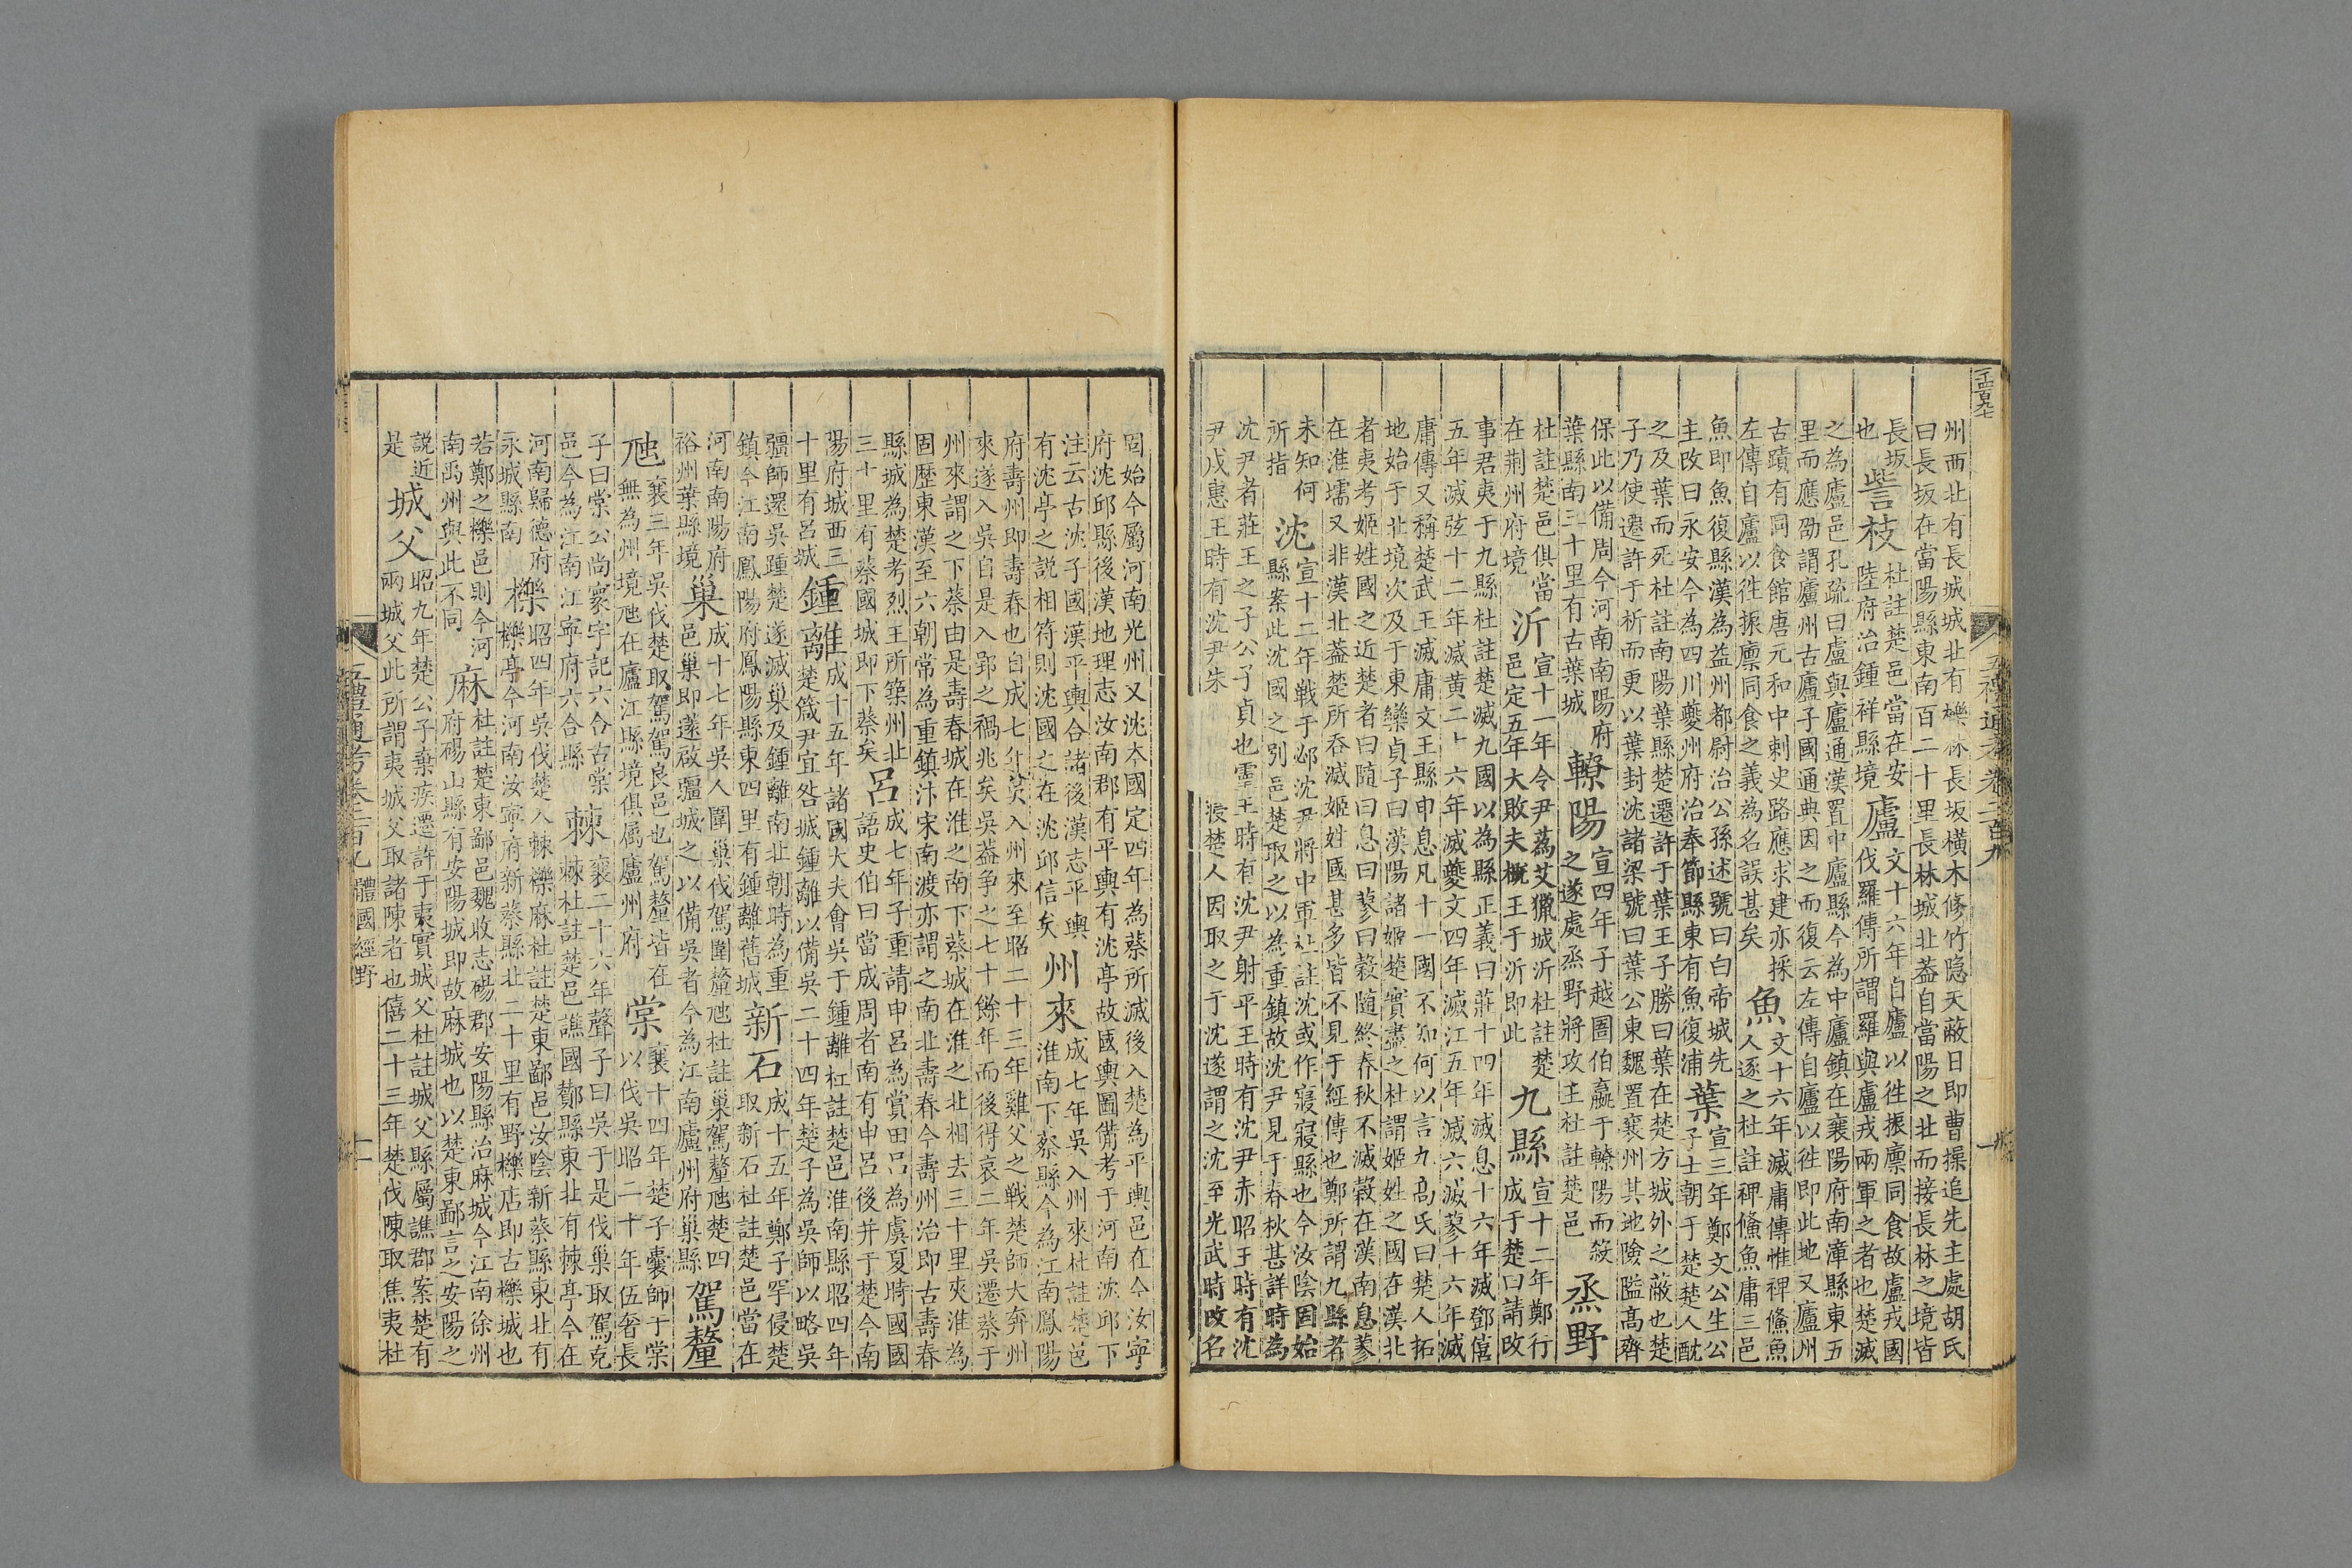 州西北有長城城北有櫟林長坂橫木修竹隱天蔽日即曹操追先主處胡氏
曰長坂在當陽縣東南百二十里長林城北葢自當陽之北而接長林之境皆
長坂
也
訾枝
杜註楚邑當在安
陸府治鍾祥縣境
廬
文十六年自廬以徃振廩同食故盧戎國
伐羅傳所謂羅與盧戎兩軍之者也楚滅
之為廬邑孔疏曰盧與廬通漢置中廬縣今為中廬鎮在襄陽府南漳縣東五
里而應劭謂廬州古廬子國通典因之而復云左傳自廬以徃即此地又廬州
古蹟有同食館唐元和中刺史路應求建亦採
左傳自廬以徃振廩同食之義為名誤甚矣
魚
文十六年滅庸傳惟裨鯈魚
人逐之杜註裨鯈魚庸三邑
魚即魚復縣漢為益州都尉治公孫述號曰白帝城先
主改曰永安今為四川夔州府治奉節縣東有魚復浦
葉
宣三年鄭文公生公
子士朝于楚楚人酖
之及葉而死杜註南陽葉縣楚遷許于葉王子勝曰葉在楚方城外之蔽也楚
子乃使遷許于析而更以葉封沈諸梁號曰葉公東魏置襄州其地險隘高齊
保此以備周今河南南陽府
葉縣南三十里有古葉城
轑陽
宣四年子越圄伯嬴于轑陽而殺
之遂處烝野將攻王杜註楚邑
烝野
杜註楚邑俱當
在荆州府境
沂
宣十一年令尹蒍艾獵城沂杜註楚
邑定五年大敗夫槪王于沂即此
九縣
宣十二年鄭行
成于楚曰請改
事君夷于九縣杜註楚滅九國以為縣正義曰莊十四年滅息十六年滅鄧僖
五年滅弦十二年滅黄二十六年滅夔文四年滅江五年滅六滅蓼十六年滅
庸傳又稱楚武王滅庸文王縣申息凡十一國不知何以言九高氏曰楚人拓
地始于北境次及于東欒貞子曰漢陽諸姬楚實盡之杜謂姬姓之國在漢北
者夷考姬姓國之近楚者曰隨曰息曰蓼曰榖隨終春秋不滅榖在漢南息蓼
在淮壖又非漢北葢楚所吞滅姬姓國甚多皆不見于經傳也鄭所謂九縣者
未知何
所指
沈
宣十二年戰于邲沈尹將中軍杜註沈或作寢寢縣也今汝陰固始
縣案此沈國之別邑楚取之以為重鎮故沈尹見于春秋甚詳時為
沈尹者莊王之子公子貞也靈王時有沈尹射平王時有沈尹赤昭王時有沈
尹戌惠王時有沈尹朱
後楚人因取之于沈遂謂之沈至光武時改名
固始今屬河南光州又沈本國定四年為蔡所滅後入楚為平輿邑在今汝寧
府沈邱縣後漢地理志汝南郡有平輿有沈亭故國輿圖備考于河南沈邱下
注云古沈子國漢平輿合諸後漢志平輿
有沈亭之說相符則沈國之在沈邱信矣
州來
成七年吳入州來杜註楚邑
淮南下蔡縣今為江南鳳陽
府壽州即壽春也自成七年吳入州來至昭二十三年雞父之戰楚師大奔州
來遂入吳自是入郢之禍兆矣吳葢争之七十餘年而後得哀二年吳遷蔡于
州來謂之下蔡由是壽春城在淮之南下蔡城在淮之北相去三十里夾淮為
固歷東漢至六朝常為重鎮汴宋南渡亦謂之南北壽春今壽州治即古壽春
縣城為楚考烈王所築州北
三十里有蔡國城即下蔡矣
呂
成七年子重請申呂為賞田呂為虞夏時國
語史伯曰當成周者南有申呂後并于楚今南
陽府城西三
十里有呂城
鍾離
成十五年諸國大夫會吳于鍾離杜註楚邑淮南縣昭四年
楚箴尹宜咎城鍾離以備吳二十四年楚子為吳師以略吳
疆師還吳踵楚遂滅巢及鍾離南北朝時為重
鎮今江南鳳陽府鳳陽縣東四里有鍾離舊城
新石
成十五年鄭子罕侵楚
取新石杜註楚邑當在
河南南陽府
裕州葉縣境
巢
成十七年吳人圍巢伐駕圍釐虺杜註巢駕釐虺楚四
邑巢即遂啟疆城之以備吳者今為江南廬州府巢縣
駕釐
虺
襄三年吳伐楚取駕駕良邑也駕釐皆在
無為州境虺在廬江縣境俱屬廬州府
棠
襄十四年楚子囊師于棠
以伐吳昭二十年伍奢長
子曰棠公尚寰宇記六合古棠
邑今為江南江寧府六合縣
棘
襄二十六年聲子曰吳于是伐巢取駕克
棘杜註楚邑譙國酇縣東北有棘亭今在
河南歸德府
永城縣南
櫟
昭四年吳伐楚入棘櫟麻杜註楚東鄙邑汝陰新蔡縣東北有
櫟亭今河南汝寧府新蔡縣北二十里有野櫟店即古櫟城也
若鄭之櫟邑則今河
南禹州與此不同
麻
杜註楚東鄙邑魏收志碭郡安陽縣治麻城今江南徐州
府碭山縣有安陽城即故麻城也以楚東鄙言之安陽之
説近
是
城父
昭九年楚公子棄疾遷許于夷實城父杜註城父縣屬譙郡案楚有
兩城父此所謂夷城父取諸陳者也僖二十三年楚伐陳取焦夷杜
五禮通考卷二百九
體國經野
十一